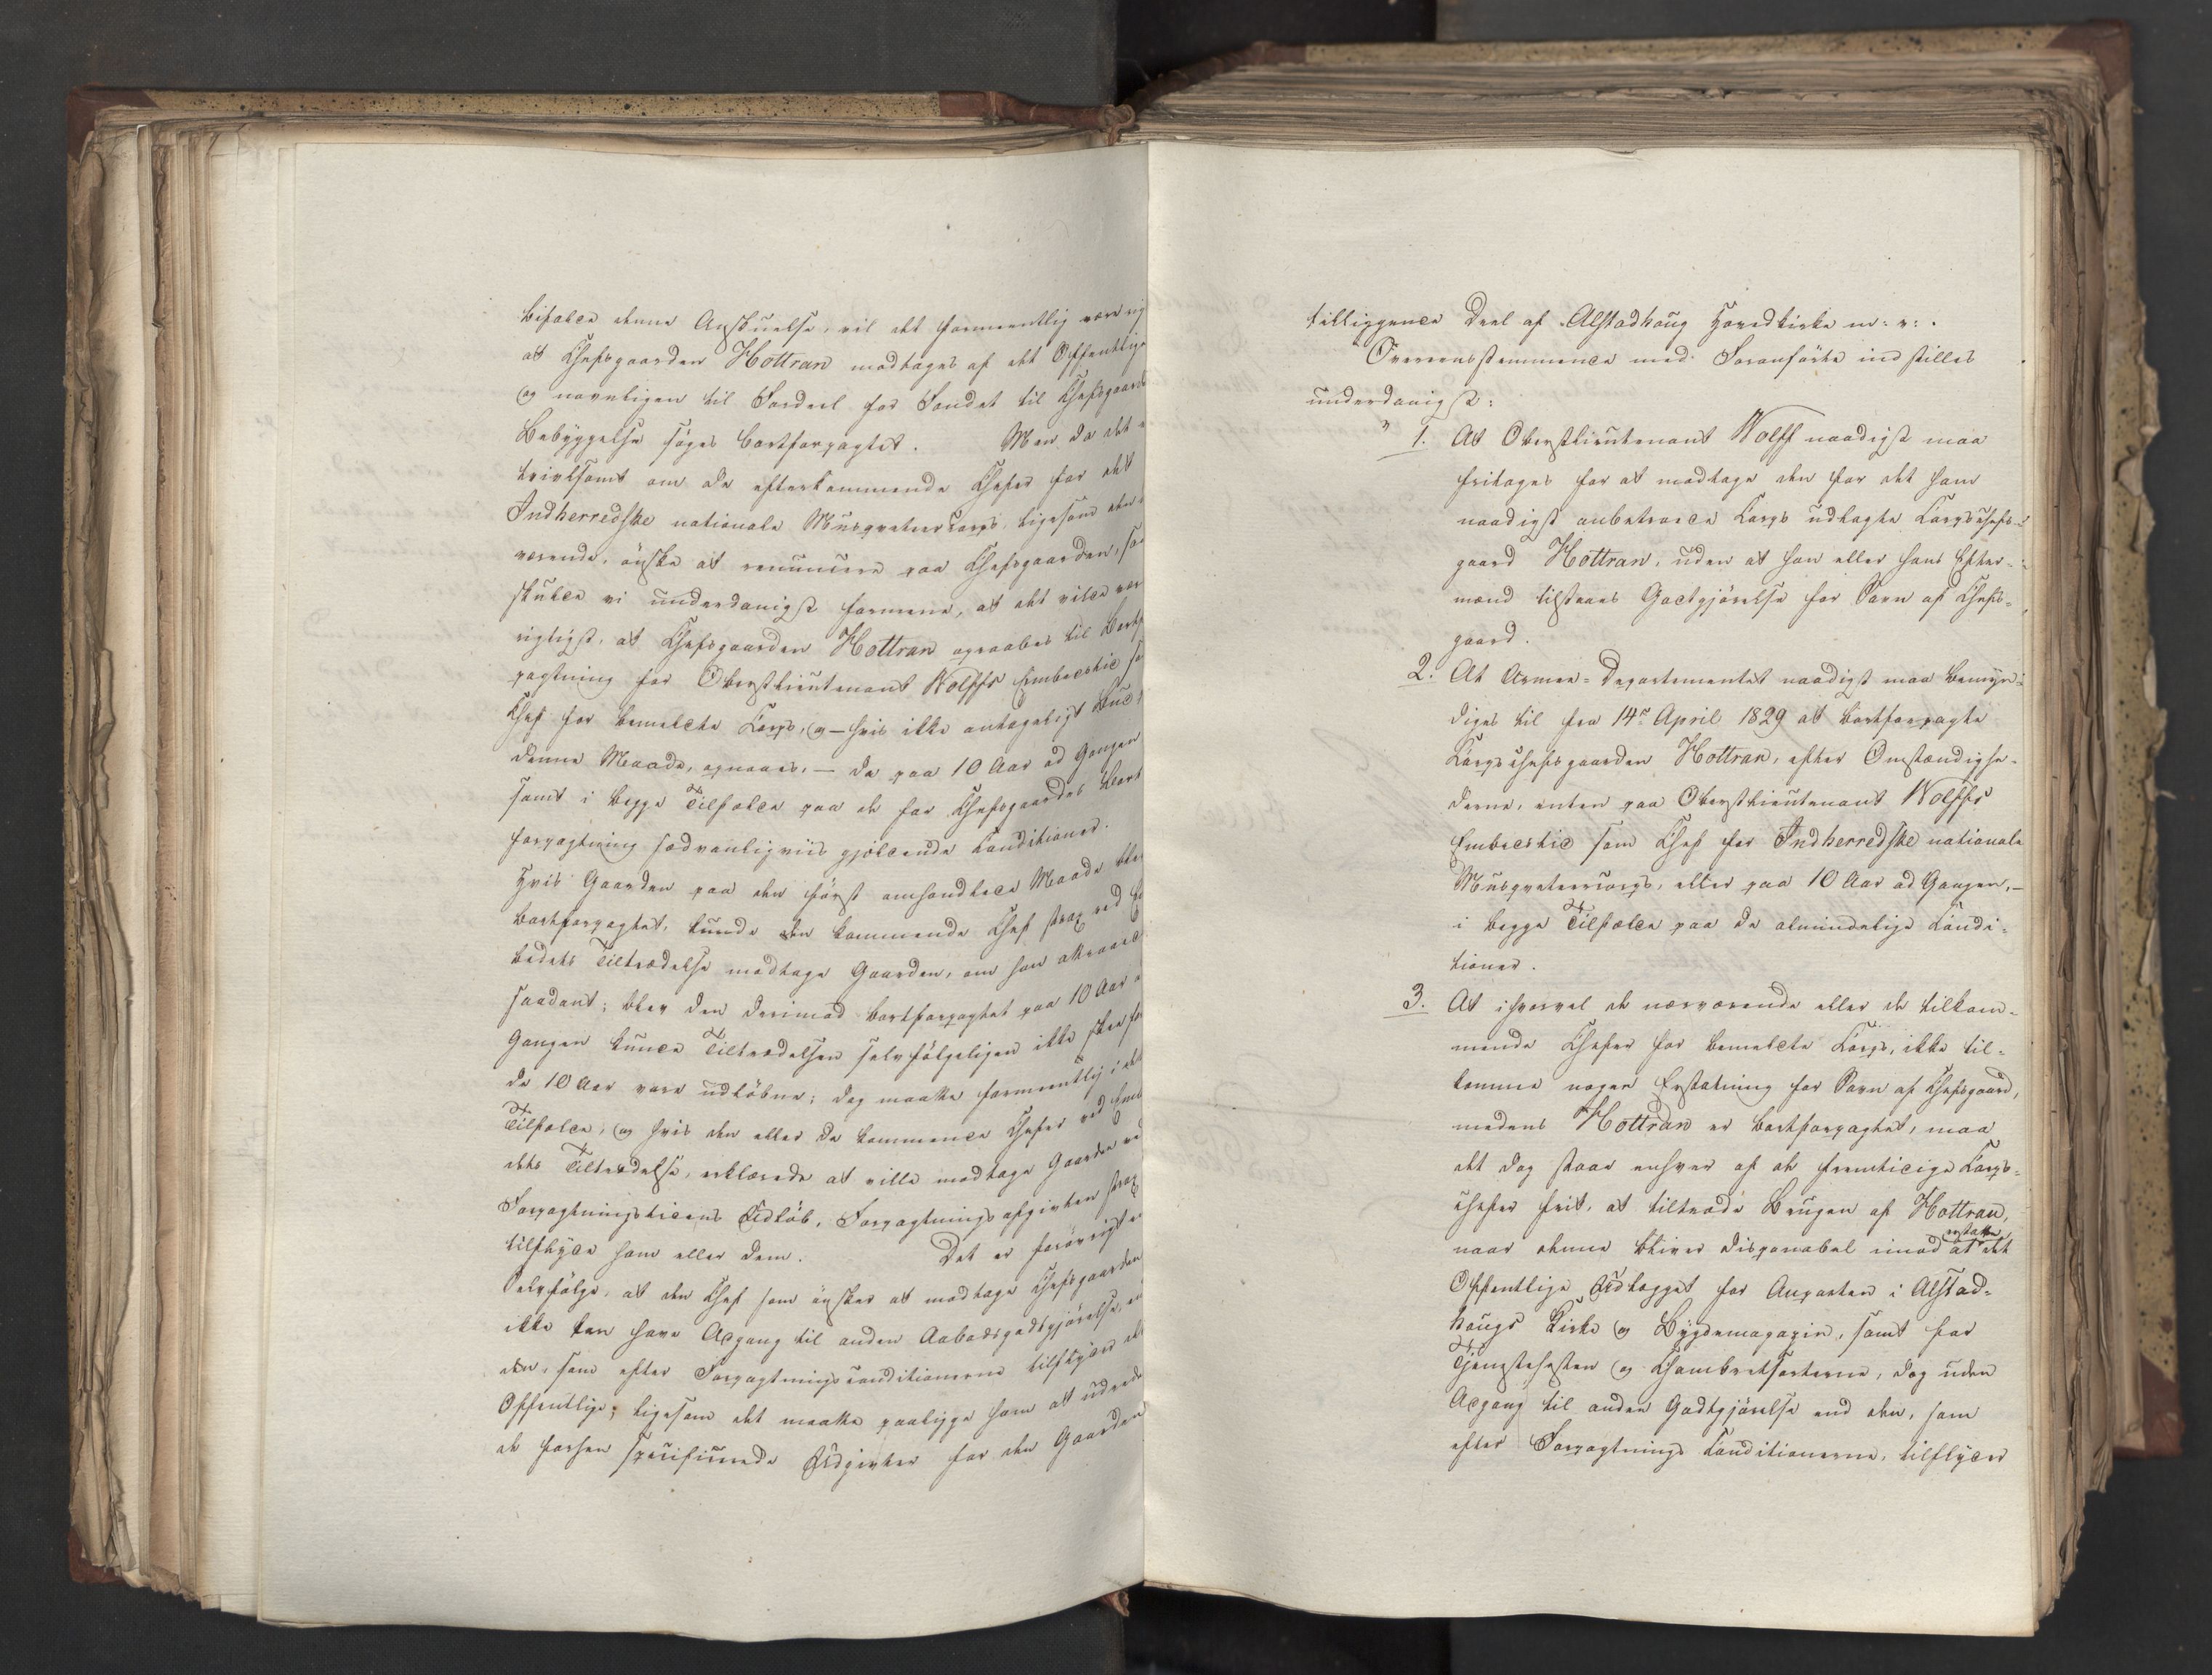 bifalde denne Anskuelse, vil det formeentlig være rig
at Chefsgaarden Hottran modtages af det Offentlige
og navnligen til Fordeel for Fondet til Chefsgaard
Bebyggelse søges bortforpagtet. Men da det
tvivlsomt om de efterkommende Chefer for det
Indherredske nationale Musqvetteercorps, ligesom den
værende, ønske at renuncere paa Chefsgaarden, saa
skulde vi underdanigst formene, at det vilde vær
rigtigst, at Chefsgaarden Hottran opraabes til Bortf
pagtning for Oberstlieutenant Wolffs Embedstid so
Chef for bemeldte Corps, og – hvis ikke antageligt Bud
denne Maade, opnaaes, – da paa 10 Aar ad Gangen
samt i begge Tilfælde paa de for Chefsgaardes Bort
forpagtning sædvanligviis gjeldende Conditioner.
Hvis Gaarden paa den først omhandlede Maade blev
bortforpagtet, kunde den kommende Chef strax ved E
bedets Tiltrædelse modtage Gaarden, om han attraaed
saadant; blev den derimod bortforpagtet paa 10 Aar a
Gangen kunde Tiltrædelsen selvfølgeligen ikke skee før
de 10 Aar vare udløbne; dog maatte formeentlig i det
Tilfælde, og hvis den eller de kommende Chefer ved Emb
dets Tiltrædelse, erklærede at ville modtage Gaarden ved
Forpagtningstidens Udløb, Forpagtningsafgivten strax
tilflyde ham eller dem. Det er forøvrigt e
Selvfølge, at den Chef som ønsker at modtage Chefsgaarden
ikke kan have Adgang til anden Aabodsgodtgjørelse, en
den, som efter Forpagtningsconditionerne tilflyder det
Offentlige; ligesom det maatte paaligge ham at udrede
de forhen specificerede Udgivter for den Gaarden
tilliggende Deel af Alstadhoug Hovedkirke m: v: .
Overeensstemmende med Foranførte indstilles
underdanigst:
" 1. At Oberstlieutenant Wolff naadigst maa
fritages for at modtage den for det ham
naadigst anbetroede Corps udlagte Corpschefs-
gaard Hottran, uden at han eller hans Efter-
mænd tilstaaes Godtgjørelse for Savn af Chefs-
gaard.
2. At Armee-Departementet naadigst maa bemyn-
diges til fra 14de April 1829 at bortforpagte
Corpschefsgaarden Hottran, efter Omstændighe-
derne, enten paa Oberstlieutenant Wolffs
Embedstid som Chef for Indherredske nationale
Musqveteercorps, eller paa 10 Aar ad Gangen, –
i begge Tilfælde paa de almindelige Condi-
tioner.
3. At ihvorvel de nærværende eller de tilkom-
mende Chefer for bemeldte Corps, ikke til-
komme nogen Erstatning for Savn af Chefsgaard,
medens Hottran er bortforpagtet, maa
det dog staae enhver af de fremtidige Corps-
chefer frit, at tiltræde Brugen af Hottran,
naar denne bliver disponabel imod at erstatte det
Offentlige Udlægget for Anparten i Alstad-
hougs Kirke og Bygdemagazin, samt for
Tjenestehesten og Chambretsorterne, dog uden
Adgang til anden Godtgjørelse end den, som
efter Forpagtnings Conditionerne, tilflyder